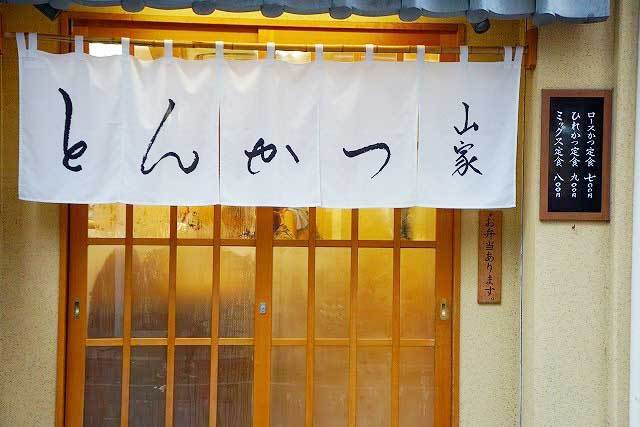 とんかつ
山家
ロースかつ定食 七〇〇円
ひれかつ定食 九〇〇円
ミックス定食 八〇〇円
お弁当あります。